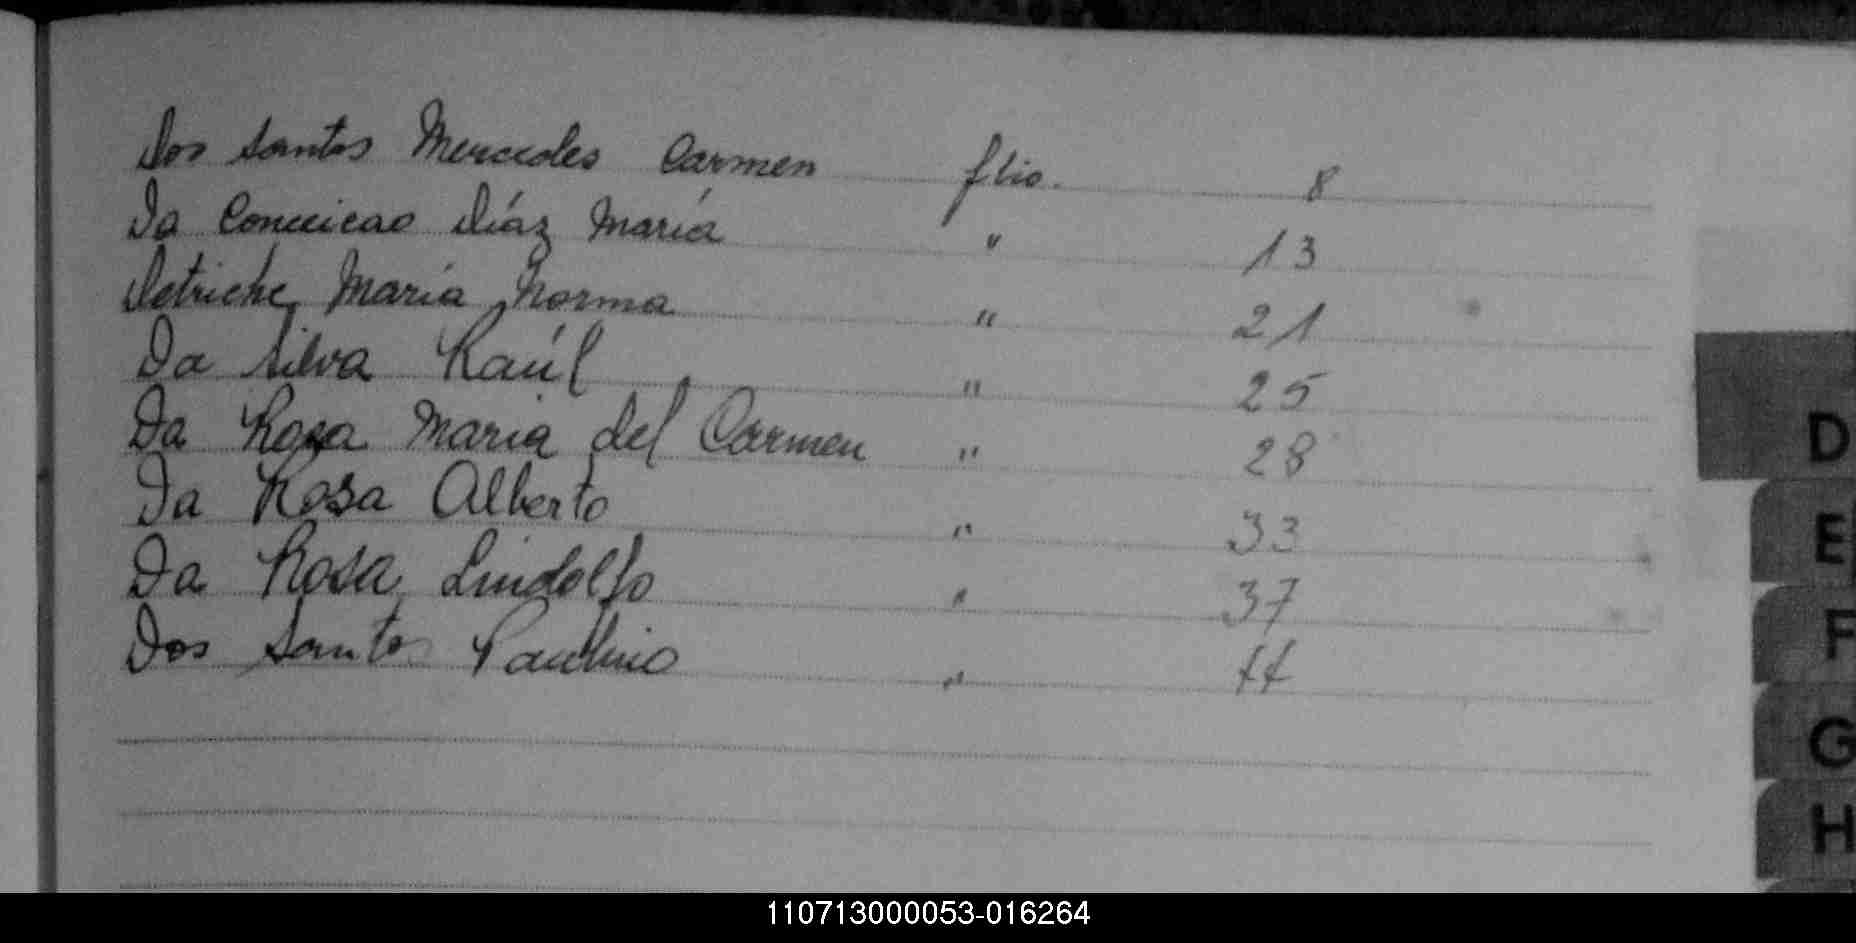 Dos Santos Mercedes Carmen flio. 8
Da Conceicao Díaz María " 13
Detriche María Norma " 21
Da Silva Raúl " 25
Da Rosa Maria del Carmen " 28
Da Rosa Alberto " 33
Da Rosa Lindolfo " 37
Dos Santos Paulino "
D
E
F
G
H
110713000053-016264